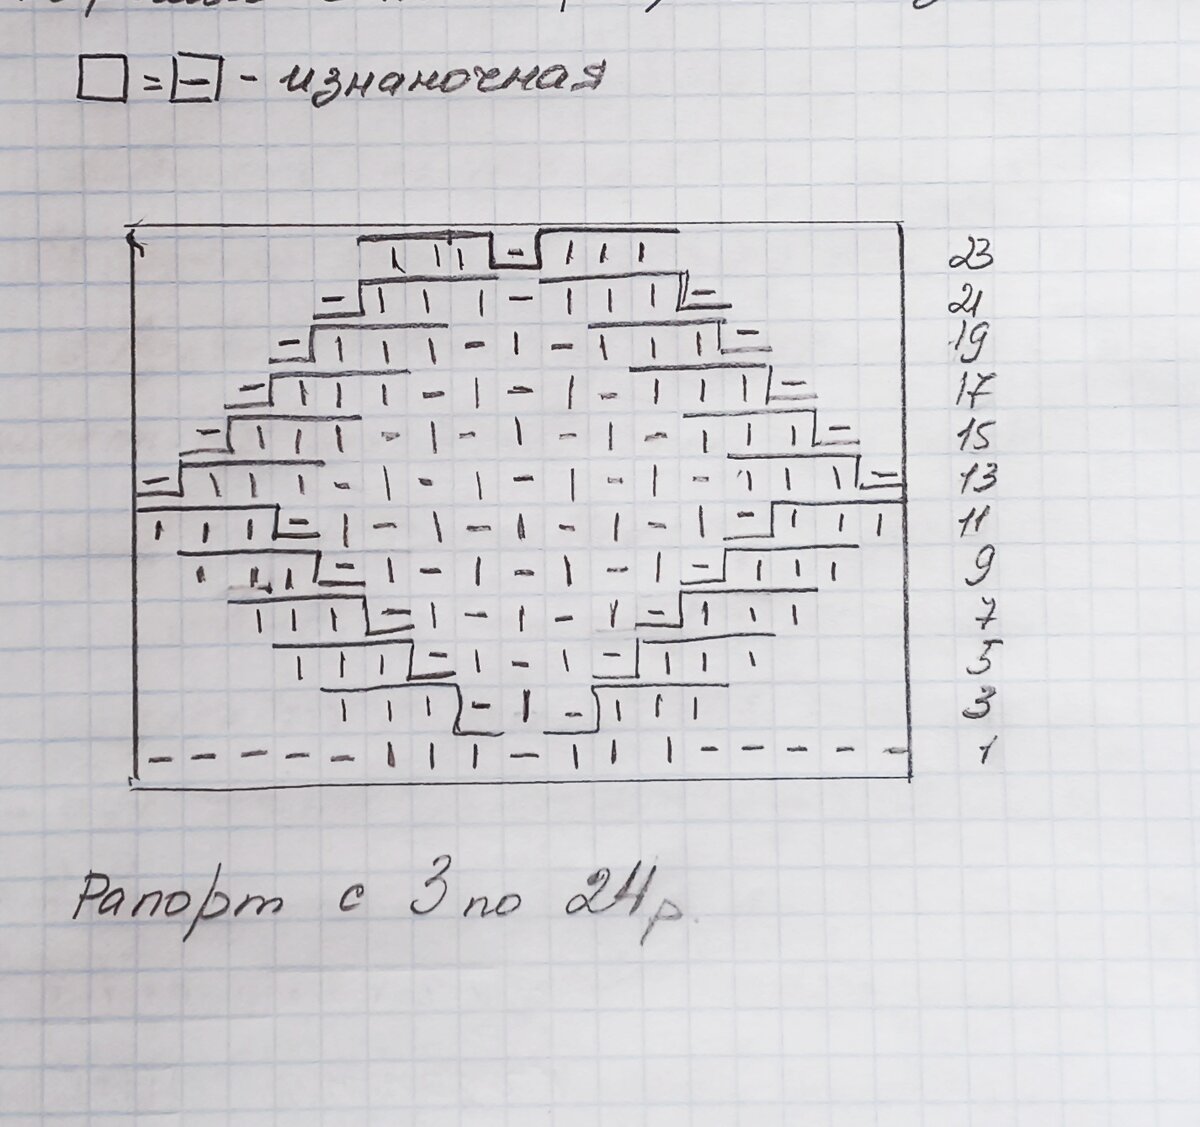 □ = ⊟ - изнаночная
23
21
19
17
15
13
11
9
7
5
3
1
Рапорт с 3 по 24 р.